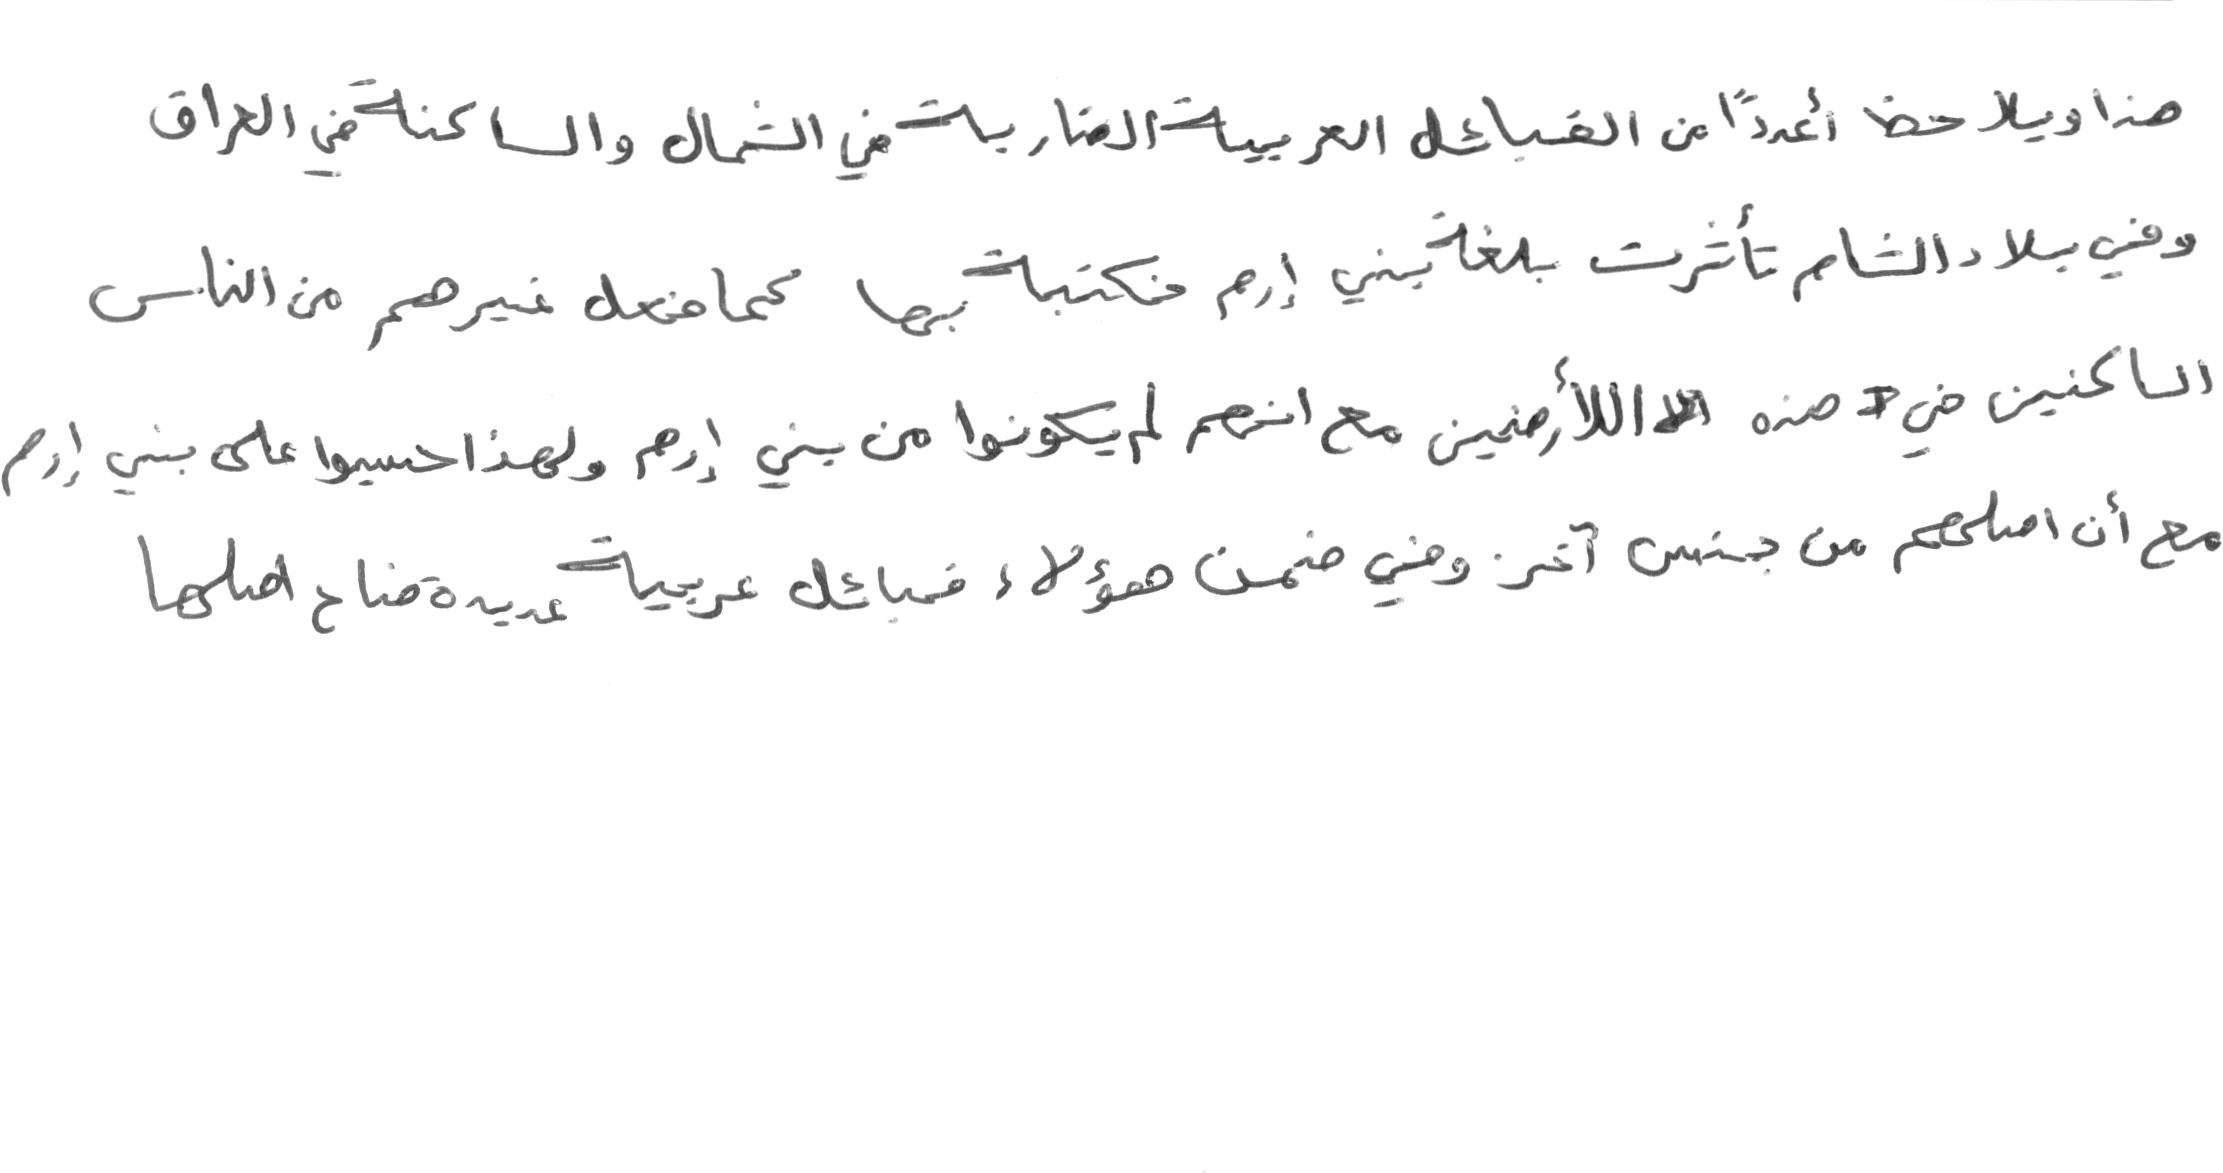 هذا ويلاحظ أعددًا من القبائل العربية الضاربة في الشمال والساكنة في العراق
وفي بلاد الشام تأثرت بلغة بني إرم فكتبة بها كما فعل غيرهم من الناس
الساكنين في هذه اللأرضين مع انهم لم يكونوا من بني إرم ولهذا حسبوا على بني إرم
مع أن اصلهم من جنس آخر وفي ضمن هؤلاء قبائل عربية عديدة ضاح اصلها